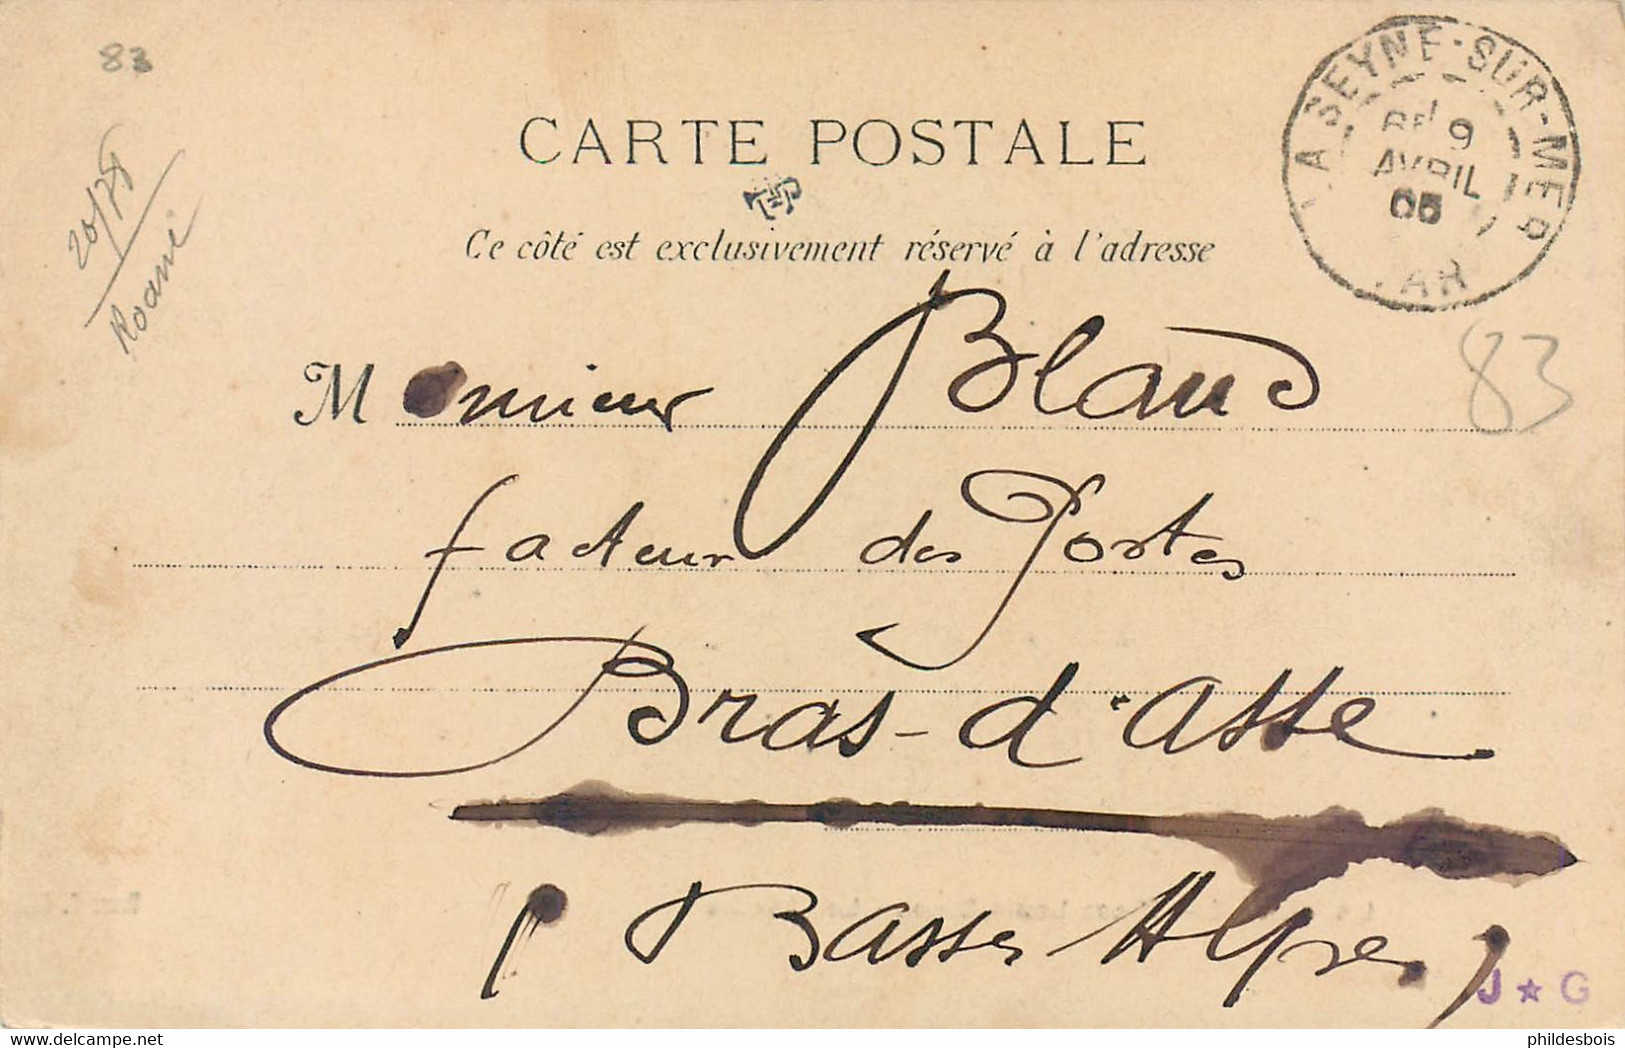 83
CARTE POSTALE
Ce côté est exclusivement réservé à l'adresse
LA SEYNE-SUR-MER
9
AVRIL
05
VAR
83
Monsieur Blanc
facteur des Postes
Bras-d'Asse
(Basses Alpes)
J ★ G
phildesbois